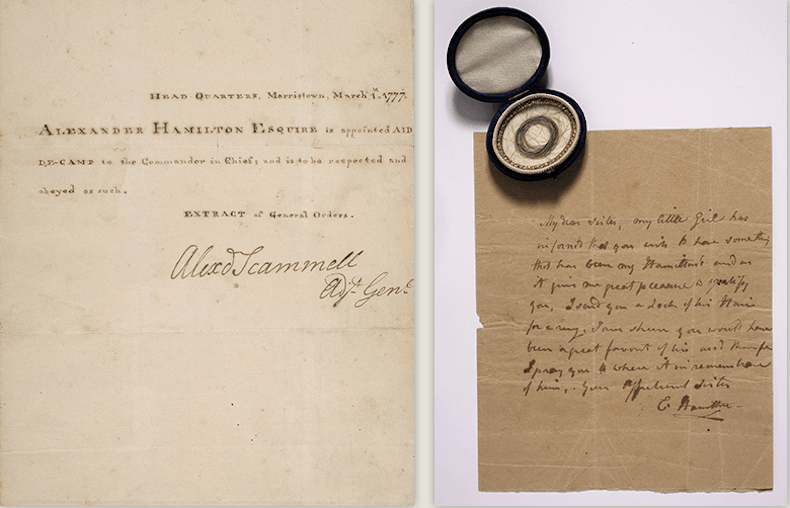 HEAD QUARTERS, Morristown, March 1st. 1777.
ALEXANDER HAMILTON ESQUIRE is appointed AID
DE-CAMP to the Commander in Chief; and is to be respected and
obeyed as such.
EXTRACT of General Orders.
Alexd Scammell
Adjt. Genl.
My dear Sister, my little Girl has
informed that you wish to have something
that has been my Hamilton's and as
it gives me great pleasure to gratify
you, I send you a Lock of his Hair
for a ring. I am shure you would have
been a great favourt of his and
I pray you to where it in remembrance
of him,. Your affectionate Sister
E Hamilton